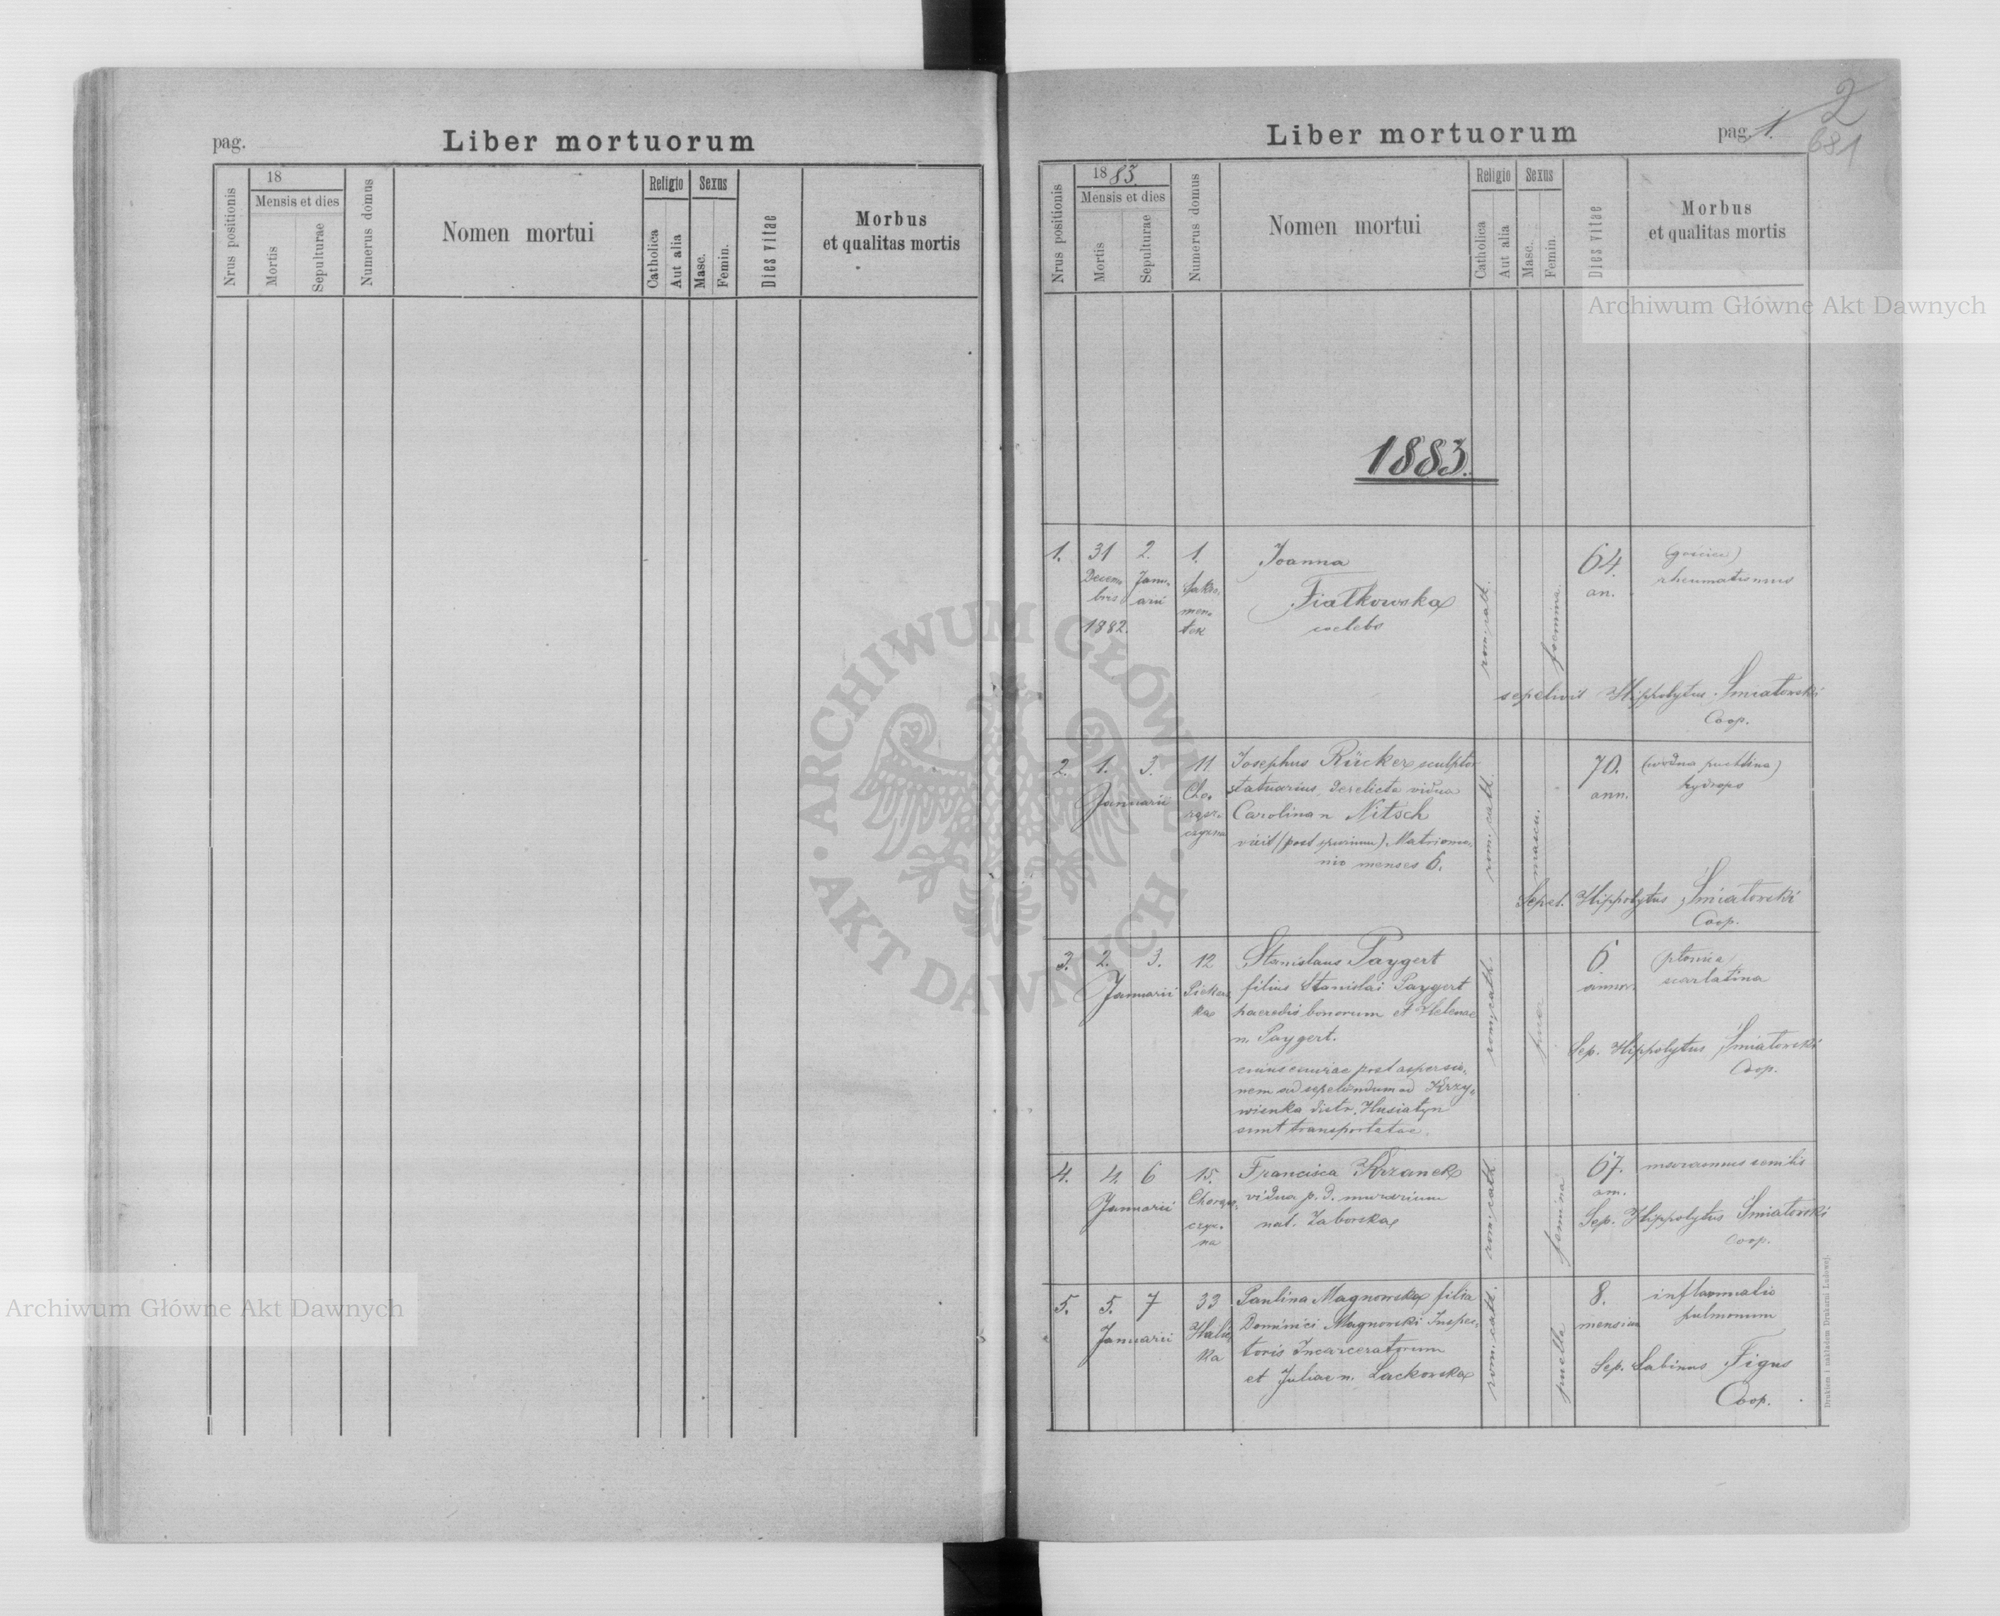 pag.
Liber mortuorum
Nrus positionis
18
Mensis et dies
Mortis
Sepulturae
Numerus domus
Nomen mortui
Religio
Catholica
Aut alia
Sexus
Masc.
Femin.
Dies vitae
Morbus
et qualitas mortis
Liber mortuorum
pag. 1.
2
681
Nrus positionis
1883.
Mensis et dies
Mortis
Sepulturae
Numerus domus
Nomen mortui
Religio
Catholica
Aut alia
Sexus
Masc.
Femin.
Dies vitae
Morbus
et qualitas mortis
Archiwum Główne Akt Dawnych
1883.
1.
31
Decem
bris
1882.
2.
Janu-
arii
1.
Sakra-
men-
tek
Joanna
Fiałkowska
coelebs
rom. cath.
foemina
64.
an.
rheumatismus
sepelivit Hippolytus Śmiatowski
Coop.
2.
1.
3.
Januarii
11
Cho-
rąsz-
czyzna
Josephus Rücker sculptor
statuarius, derelicta vidua
Carolina n Nitsch
menses 6.
rom. cath.
mascu.
70.
ann.
(wodna puchlina)
hydrops
Sepel. Hippolytus Śmiatowski
Coop.
3.
2.
3.
Januarii
12
Piekar
ka
Stanislaus Paygert
filius Stanislai Paygert
haeredis bonorum et Helenae
n. Paygert.
cuius exuviae post aspersio-
nem ad sepeliendum ad Krzy-
wienka distr. Husiatyn
sunt transportatae.
rom. cath.
puer
6
annor.
płonica
scarlatina
Sep. Hippolytus Śmiatowski
Coop.
4.
4.
6
Januarii
15.
Chorąsz-
czyz-
na
Francisca Krzanek
vidua p. d. murarium
nat. Zaborska
rom. cath.
femina
67.
an.
marasmus senilis
Sep. Hippolytus Śmiatowski
Coop.
5.
5.
7
Januarii
33
Halic-
ka
Paulina Magnowska filia
Dominici Magnowski Inspec-
toris Incarceratorum
et Juliae n. Lackowska
rom. cath.
puella
8.
mensium
inflammatio
pulmonum
Sep. Sabinus Figus
Coop.
Drukiem i nakładem Drukarni Ludowej.
Archiwum Główne Akt Dawnych
ARCHIWUM GŁÓWNE
AKT DAWNYCH